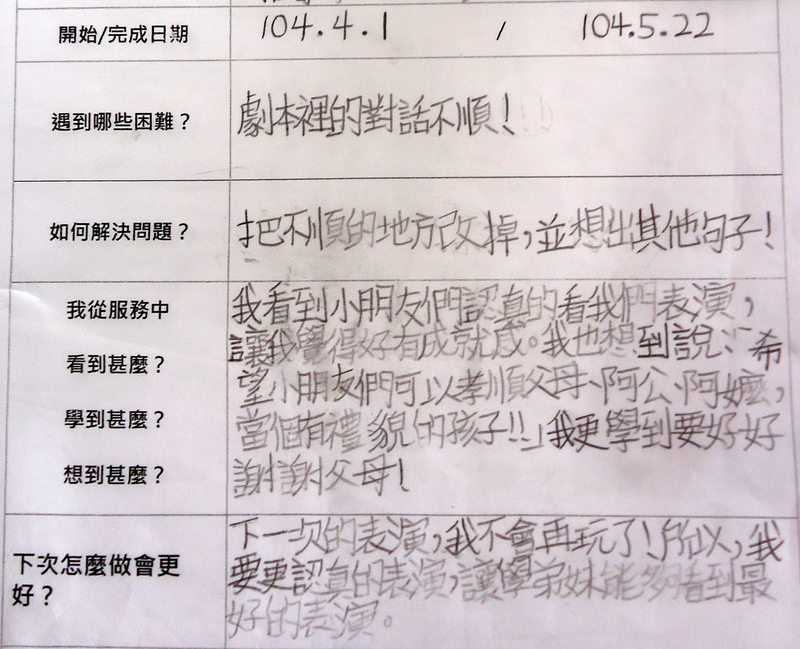 開始/完成日期 104.4.1 / 104.5.22
遇到哪些困難？ 劇本裡的對話不順！
如何解決問題？ 把不順的地方改掉，並想出其他句子！
我從服務中
看到甚麼？
學到甚麼？
想到甚麼？
我看到小朋友們認真的看我們表演，
讓我覺得好有成就感。我也想到說：「希
望小朋友們可以孝順父母、阿公、阿嬤，
當個有禮貌的孩子!!」我更學到要好好
謝謝父母！
下次怎麼做會更
好？
下一次的表演，我不會再玩了！所以，我
要更認真的表演，讓學弟妹能夠看到最
好的表演。